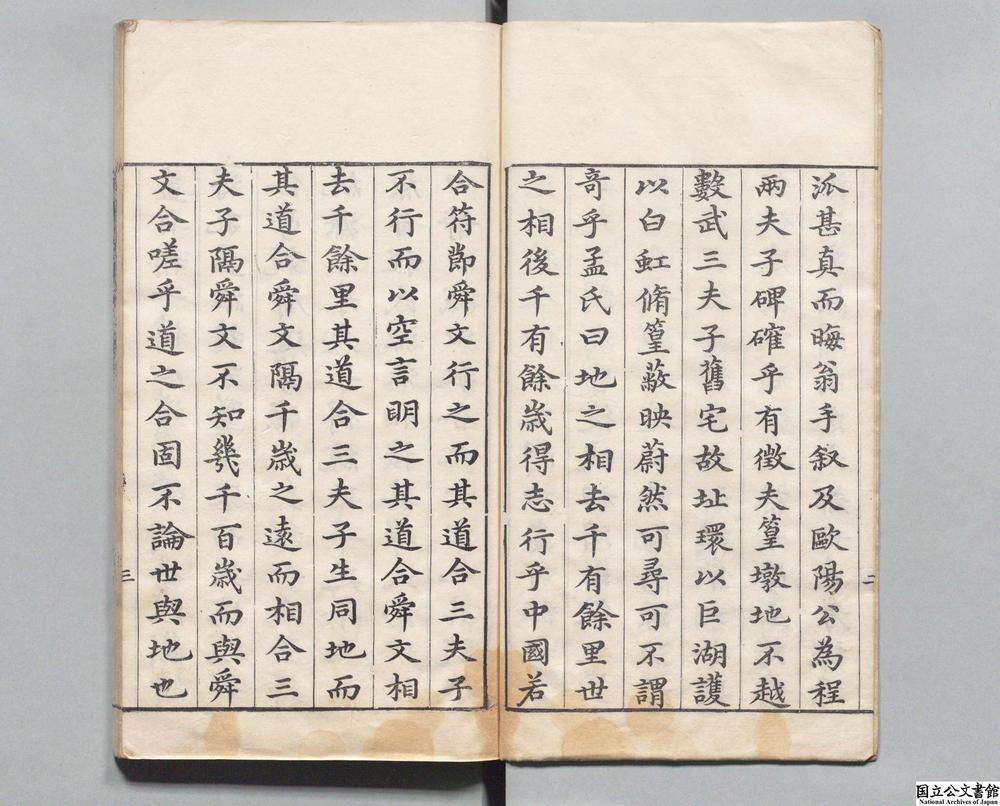 派甚真而晦翁手叙及歐陽公為程
兩夫子碑確乎有徵夫篁墩地不越
數武三夫子舊宅故址環以巨湖護
以白虹脩篁蔽映蔚然可尋可不謂
竒乎孟氏曰地之相去千有餘里世
之相後千有餘歲得志行乎中國若
二
合符節舜文行之而其道合三夫子
不行而以空言明之其道合舜文相
去千餘里其道合三夫子生同地而
其道合舜文隔千歲之遠而相合三
夫子隔舜文不知幾千百歲而與舜
文合嗟乎道之合固不論世與地也
三
国立公文書館
National Archives of Japan